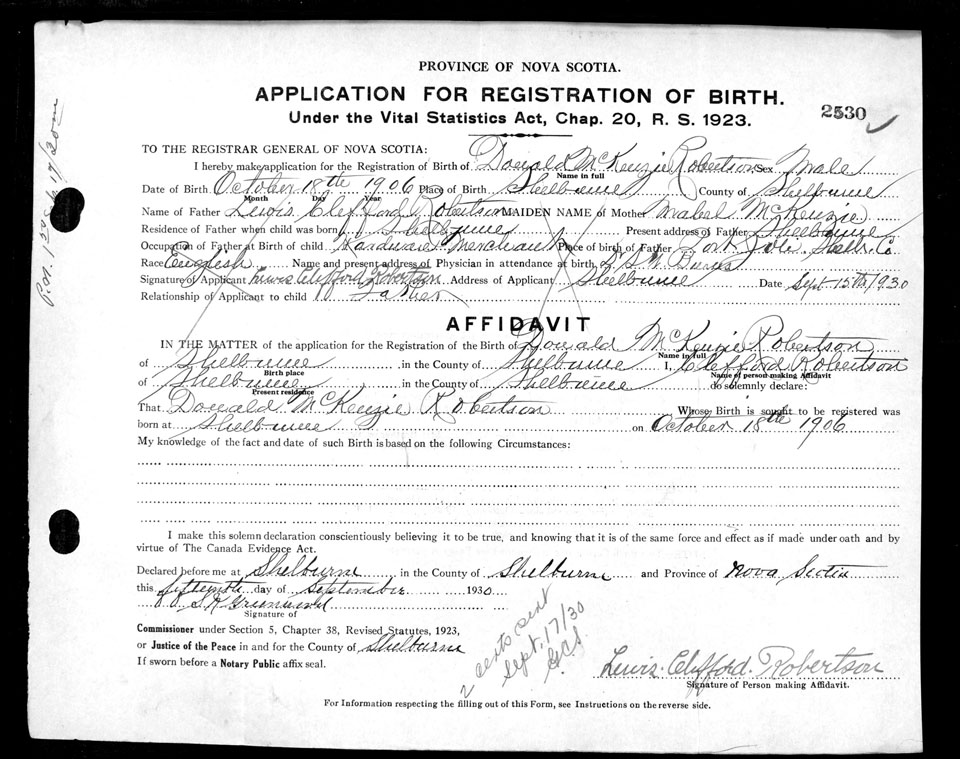 PROVINCE OF NOVA SCOTIA.
APPLICATION FOR REGISTRATION OF BIRTH.
2530
Under the Vital Statistics Act, Chap. 20, R. S. 1923.
TO THE REGISTRAR GENERAL OF NOVA SCOTIA:
I hereby make application for the Registration of Birth of Donald McKenzie Robertson Sex Male
Name in full
Date of Birth October 18th 1906 Place of Birth Shelburne County of Shelburne
Month Day Year
Name of Father Lewis Clifford Robertson MAIDEN NAME of Mother Mabel McKenzie
Residence of Father when child was born Shelburne Present address of Father Shelburne
Occupation of Father at Birth of child Hardware Merchant Place of birth of Father Port Jolie, Shelb. Co
Race English Name and present address of Physician in attendance at birth, Burns
Signature of Applicant Lewis Clifford Robertson Address of Applicant Shelburne Date Sept 15th 1930
Relationship of Applicant to child Father
AFFIDAVIT
IN THE MATTER of the application for the Registration of the Birth of Donald McKenzie Robertson
Name in full
of Shelburne in the County of Shelburne I, Clifford Robertson
Birth place Name of person making Affidavit
of Shelburne in the County of Shelburne do solemnly declare:
Present residence
That Donald McKenzie Robertson Whose Birth is sought to be registered was
born at Shelburne on October 18th 1906
My knowledge of the fact and date of such Birth is based on the following Circumstances:
I make this solemn declaration conscientiously believing it to be true, and knowing that it is of the same force and effect as if made under oath and by
virtue of The Canada Evidence Act.
Declared before me at Shelburne in the County of Shelburne and Province of Nova Scotia
this fifteenth day of September 1930
Signature of
Commissioner under Section 5, Chapter 38, Revised Statutes, 1923,
or Justice of the Peace in and for the County of Shelburne
If sworn before a Notary Public affix seal.
2 cents sent
Sept. 17/30
Lewis. Clifford. Robertson
Signature of Person making Affidavit.
For Information respecting the filling out of this Form, see Instructions on the reverse side.